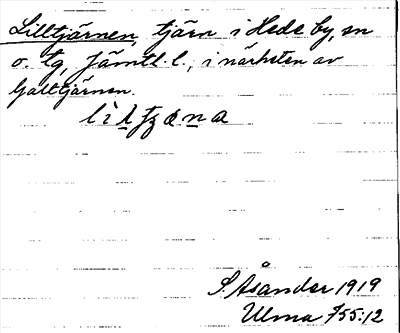 Lilltjärnen, tjärn i Hede by, sn
o. tg, Jämtl. l., i närheten av
Galltjärnen.
S. Åsander 1919
Ulma 755:12